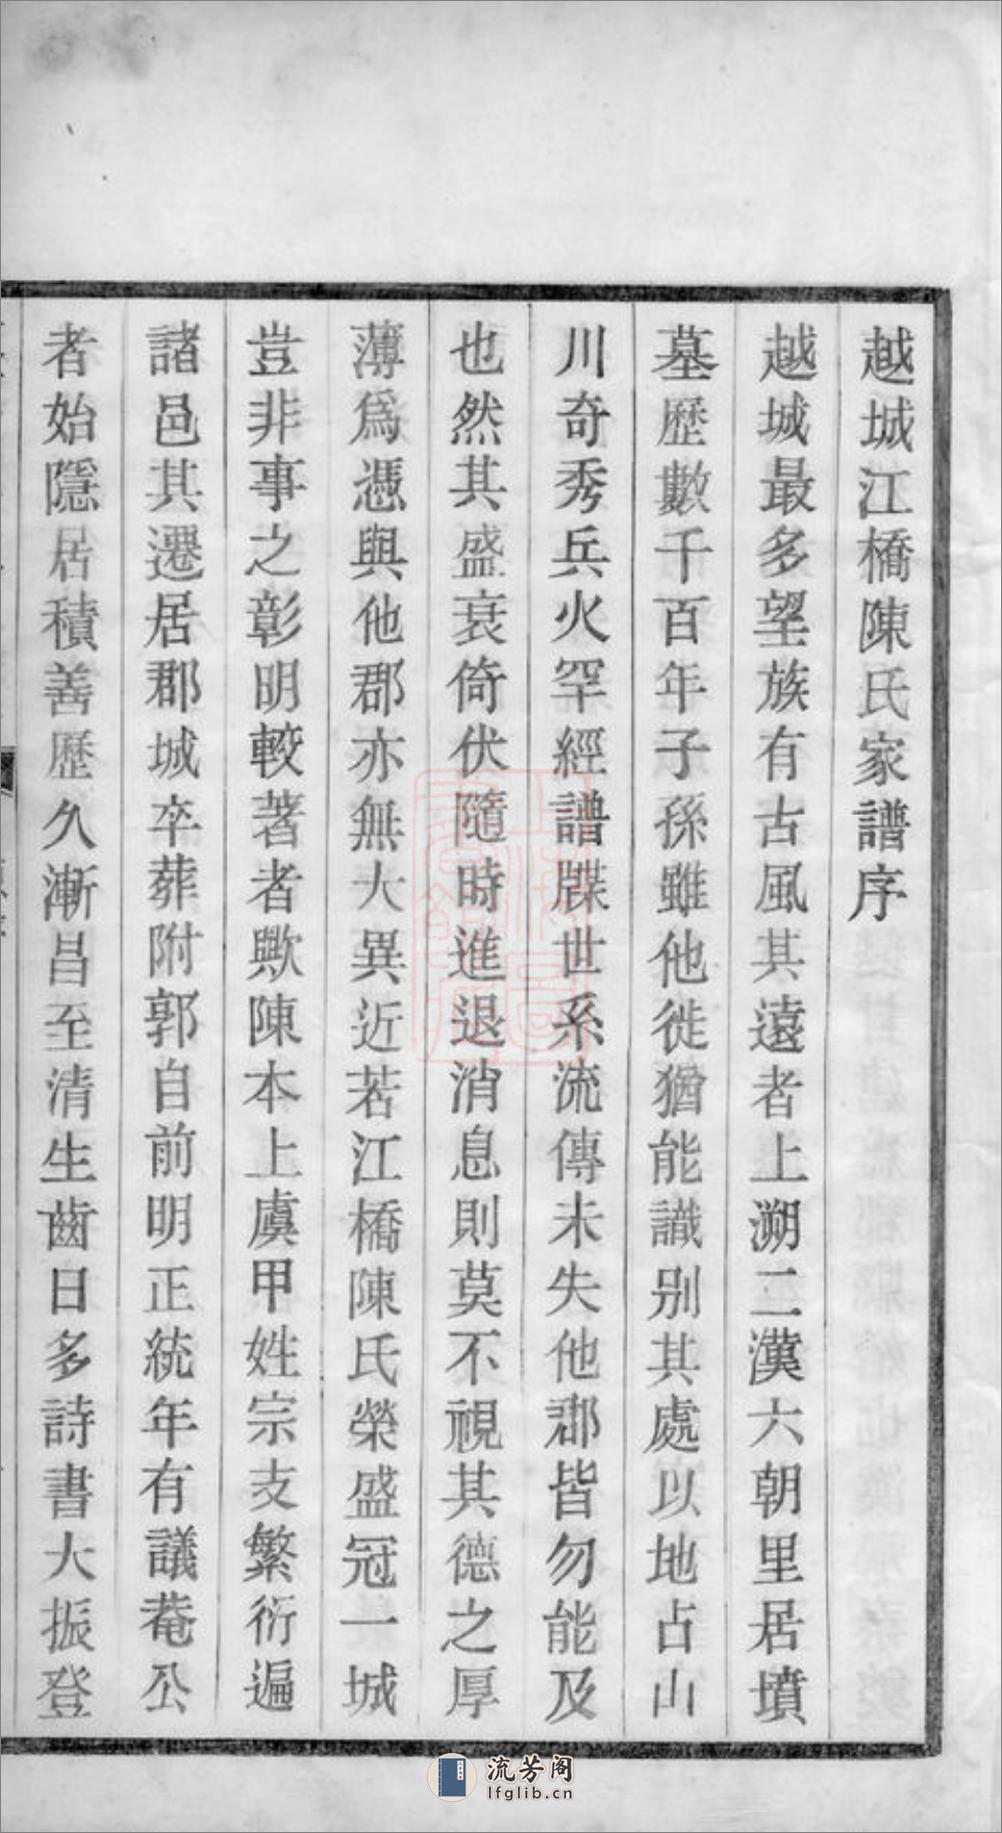 越城江橋陳氏家譜序
越城最多望族有古風其遠者上溯二漢六朝里居墳
墓歷數千百年子孫雖他徙猶能識别其處以地占山
川奇秀兵火罕經譜牒世系流傳未失他郡皆勿能及
也然其盛衰倚伏隨時進退消息則莫不視其德之厚
薄爲憑與他郡亦無大異近若江橋陳氏榮盛冠一城
豈非事之彰明較著者歟陳本上虞甲姓宗支繁衍遍
諸邑其遷居郡城卒葬附郭自前明正統年有議菴公
者始隱居積善歷久漸昌至清生齒日多詩書大振登
流芳阁
lfglib.cn